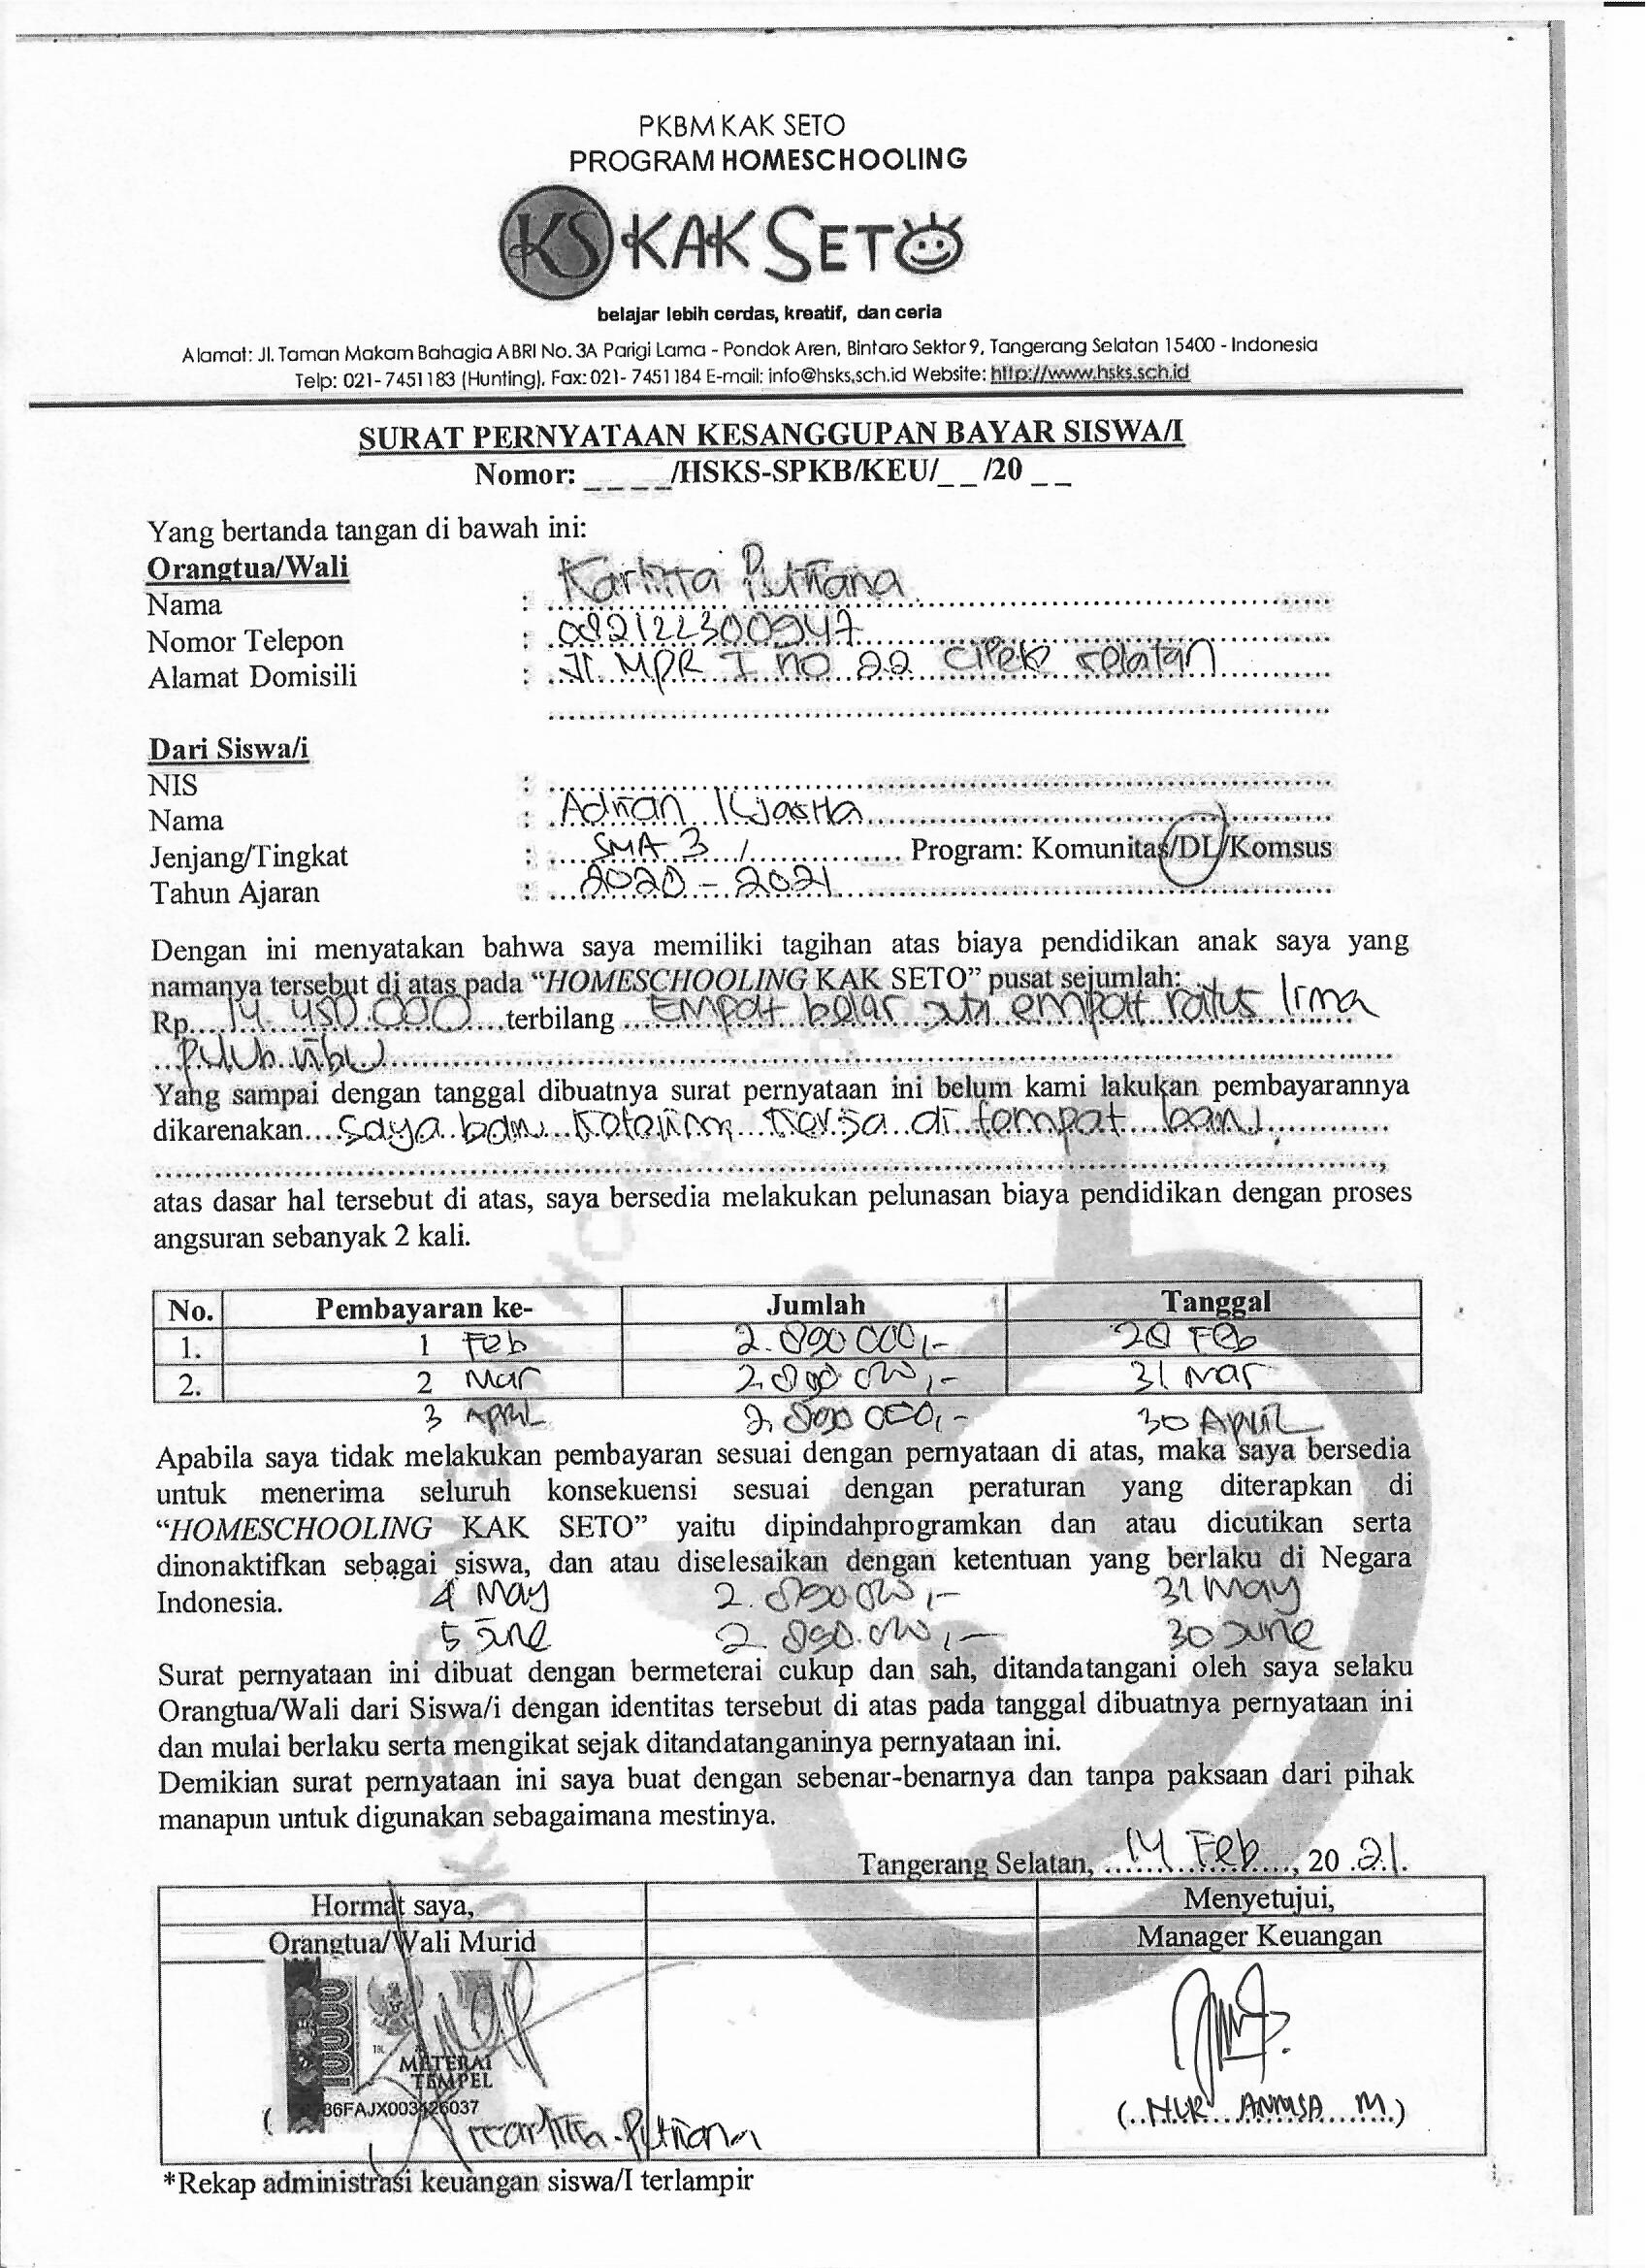 PKBM KAK SETO
PROGRAM HOMESCHOOLING
KS KAK SETO
belajar lebih cerdas, kreatif, dan ceria
Alamat: Jl. Taman Makam Bahagia ABRI No. 3A Parigi Lama - Pondok Aren, Bintaro Sektor 9, Tangerang Selatan 15400 - Indonesia
Telp: 021- 7451183 (Hunting), Fax: 021- 7451184 E-mail: info@hsks.sch.id Website: http://www.hsks.sch.id
SURAT PERNYATAAN KESANGGUPAN BAYAR SISWA/I
Nomor: _ _ _ _/HSKS-SPKB/KEU/_ _ /20 _ _
Yang bertanda tangan di bawah ini:
Orangtua/Wali
Nama : Kartitta Putriana
Nomor Telepon : 082122300947
Alamat Domisili : Jl. MPR I no 22 cipete selatan
Dari Siswa/i
NIS :
Nama : Adrian
Jenjang/Tingkat : SMA 3 / Program: Komunitas/DL/Komsus
Tahun Ajaran : 2020 - 2021
Dengan ini menyatakan bahwa saya memiliki tagihan atas biaya pendidikan anak saya yang
namanya tersebut di atas pada “HOMESCHOOLING KAK SETO” pusat sejumlah:
Rp....14.450.000....terbilang ...Empat belas juta empat ratus lima
puluh ribu
Yang sampai dengan tanggal dibuatnya surat pernyataan ini belum kami lakukan pembayarannya
dikarenakan....saya baru keterima kerja di tempat baru,
atas dasar hal tersebut di atas, saya bersedia melakukan pelunasan biaya pendidikan dengan proses
angsuran sebanyak 2 kali.
No. Pembayaran ke- Jumlah Tanggal
1. 1 Feb 2.890 000,- 28 Feb
2. 2 Mar 2.890 000,- 31 Mar
3 April 2.890 000,- 30 April
Apabila saya tidak melakukan pembayaran sesuai dengan pernyataan di atas, maka saya bersedia
untuk menerima seluruh konsekuensi sesuai dengan peraturan yang diterapkan di
“HOMESCHOOLING KAK SETO” yaitu dipindahprogramkan dan atau dicutikan serta
dinonaktifkan sebagai siswa, dan atau diselesaikan dengan ketentuan yang berlaku di Negara
Indonesia.
4 May 2.890.000,- 31 May
5 June 2.890.000,- 30 June
Surat pernyataan ini dibuat dengan bermeterai cukup dan sah, ditandatangani oleh saya selaku
Orangtua/Wali dari Siswa/i dengan identitas tersebut di atas pada tanggal dibuatnya pernyataan ini
dan mulai berlaku serta mengikat sejak ditandatanganinya pernyataan ini.
Demikian surat pernyataan ini saya buat dengan sebenar-benarnya dan tanpa paksaan dari pihak
manapun untuk digunakan sebagaimana mestinya.
Tangerang Selatan, 14 Feb, 20 21.
Hormat saya, Menyetujui,
Orangtua/Wali Murid Manager Keuangan
10000
METERAI
TEMPEL
86FAJX003426037
Kartitta Putriana
(NUR ANNISA M.)
*Rekap administrasi keuangan siswa/I terlampir